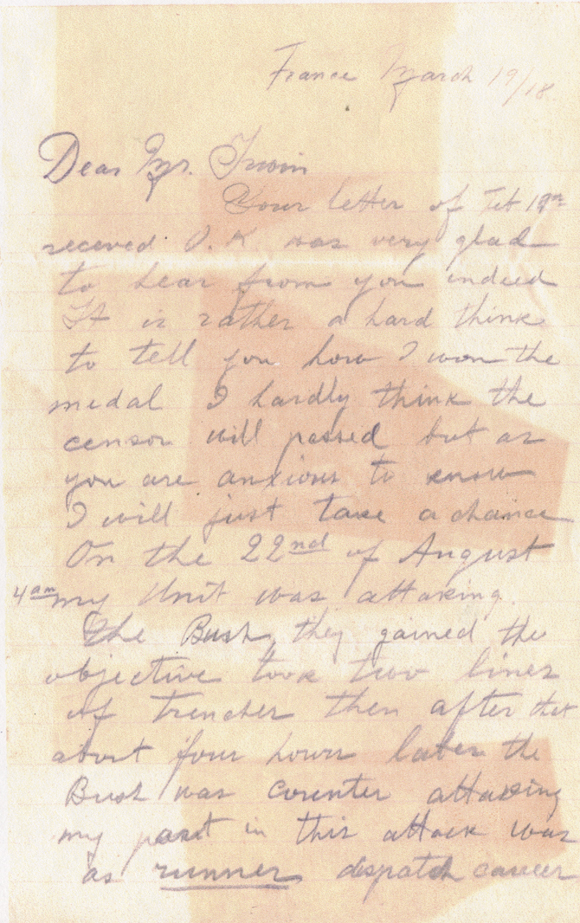 France March 19/18
Dear Mr. Irwin
Your letter of Feb 19th
receved O.K was very glad
to hear from you indeed
It is rather a hard think
to tell you how I won the
medal I hardly think the
censor will passed but as
you are anxious to know
I will just take a chance
On the 22nd of August
4 am my Unit was attaking.
The Bush, they gained the
objective took two lines
of trenches then after that
about four hours later the
Bush was counter attaking
my part in this attack was
as runner dispatch career